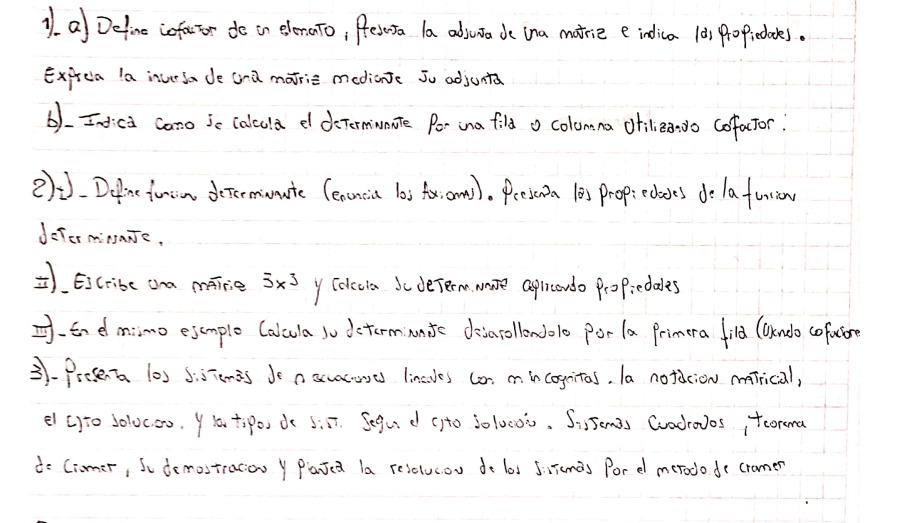 1)_ a) Define cofactor de un elemento, Presenta la adjunta de una matriz e indica las propiedades.
Expresa la inversa de una matriz mediante su adjunta
b)_ Indica como se calcula el determinante por una fila o columna utilizando cofactor.
2)I)_ Define funcion determinante (enuncia los Axiomas). Presenta las propiedades de la funcion
determinante.
II)_ Escribe una matriz 3x3 y calcula su determinante aplicando propiedades
III)_ En el mismo ejemplo calcula su determinante desarollandolo por la primera fila (Usando cofactore
3)_ Presenta los sistemas de n ecuaciones lineales con m incognitas. la notacion matricial,
el cjto solucion. y los tipos de sist. Segun el cjto solución. Sistemas Cuadrados, teorema
de Cramer, su demostracion y plantea la resolucion de los sistemas por el metodo de cramer